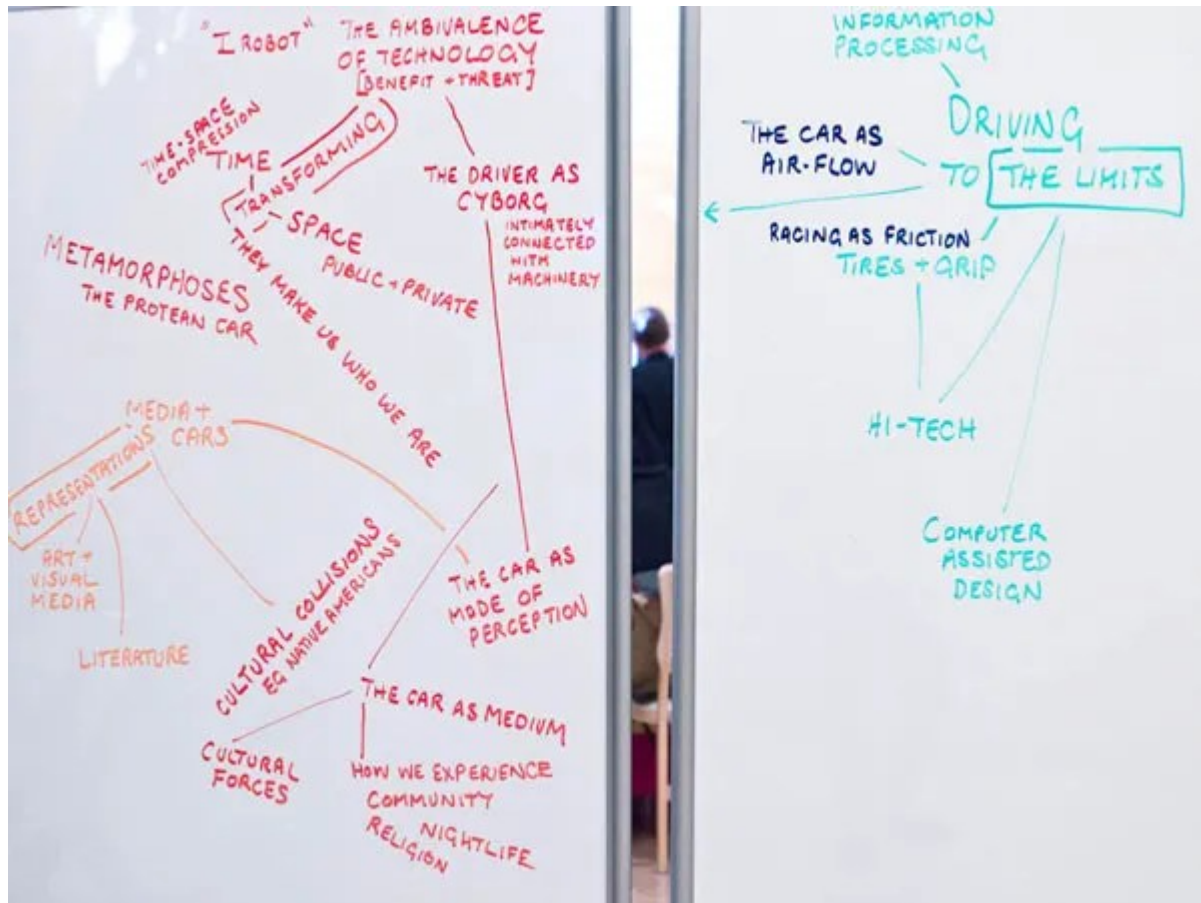 "I ROBOT"
THE AMBIVALENCE
OF TECHNOLOGY
[BENEFIT + THREAT]
TIME-SPACE
COMPRESSION
TIME
TRANSFORMING
SPACE
PUBLIC + PRIVATE
THEY MAKE US WHO WE ARE
THE DRIVER AS
CYBORG
INTIMATELY
CONNECTED
WITH
MACHINERY
METAMORPHOSES
THE PROTEAN CAR
MEDIA +
CARS
REPRESENTATIONS
ART +
VISUAL
MEDIA
LITERATURE
CULTURAL COLLISIONS
EG NATIVE AMERICANS
THE CAR AS
MODE OF
PERCEPTION
THE CAR AS MEDIUM
CULTURAL
FORCES
HOW WE EXPERIENCE
COMMUNITY
NIGHTLIFE
RELIGION
INFORMATION
PROCESSING
DRIVING
TO THE LIMITS
THE CAR AS
AIR-FLOW
RACING AS FRICTION
TIRES + GRIP
HI-TECH
COMPUTER
ASSISTED
DESIGN